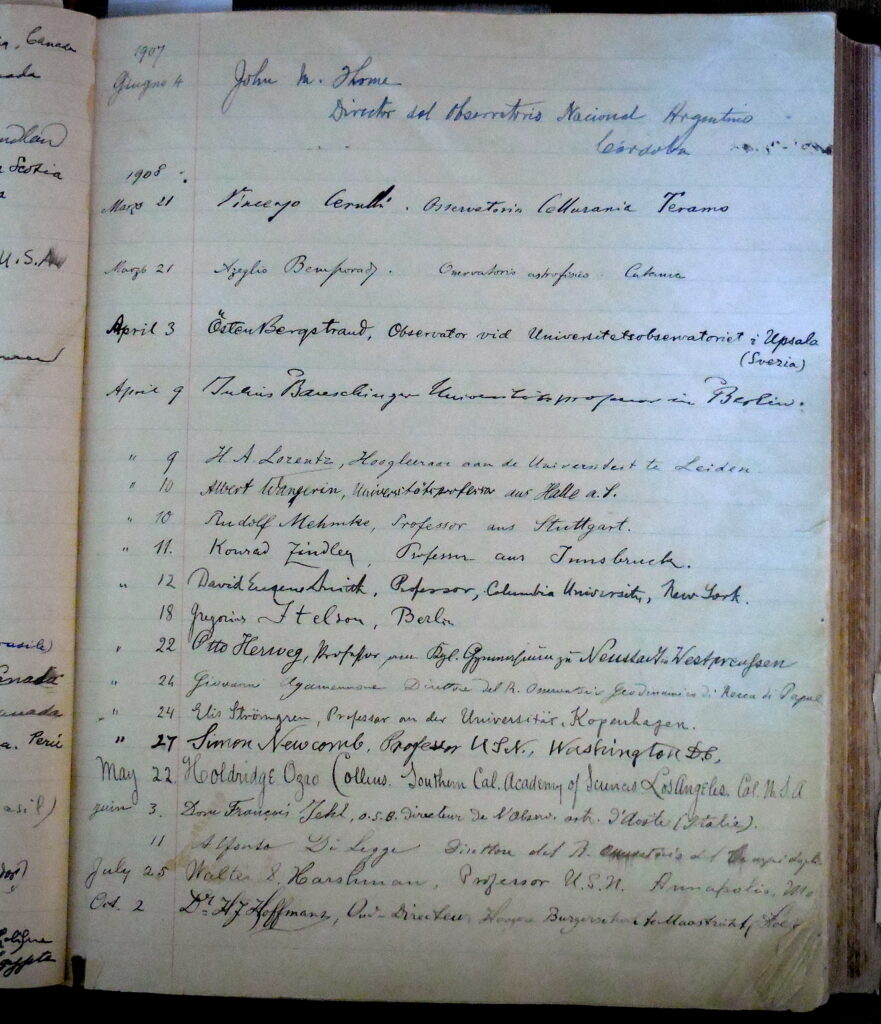 a, Canada
nada
Scotia
U.S.A
Canada
anada
a. Perú
asil)
1907
Giugno 4 John M. Thome
Director del Observatorio Nacional Argentino
Córdoba
1908
Marzo 21 Vincenzo Cerulli. Osservatorio Collurania Teramo
Marzo 21 Azeglio Bemporad. Osservatorio astrofisico Catania
April 3 Östen Bergstrand, Observator vid Universitetsobservatoriet i Upsala
(Svezia)
April 9 Julius Bauschinger Universitätsprofessor in Berlin.
" 9 H A Lorentz, Hoogleeraar aan de Universiteit te Leiden
" 10 Albert Wangerin, Universitätsprofessor aus Halle a.S.
" 10 Rudolf Mehmke, Professor aus Stuttgart.
" 11. Konrad Zindler, Professor aus Innsbruck.
" 12 David Eugene Smith, Professor, Columbia University, New York.
18 Gregorius Itelson, Berlin
" 22 Otto Herweg, Professor am Kgl. Gymnasium zu Neustadt in Westpreußen
" 24 Giovanni Agamennone Direttore del R. Osservatorio Geodinamico di Rocca di Papa
" 24 Elis Strömgren, Professor an der Universität, Kopenhagen.
" 27 Simon Newcomb, Professor U.S.N., Washington D.C.
May 22. Holdridge Ozro Collins. Southern Cal. Academy of Sciences Los Angeles. Cal. U.S.A
juin 3. Dom François Jehl, o.s.B. directeur de l'Observ. astr. d'Aoste (Italie).
11 Alfonso Di Legge Direttore del R. Osservatorio del Campidoglio
July 25 Walter S. Harshman, Professor U.S.N. Annapolis, Md
Oct. 2 Dr HJ Hoffmans, Oud-Directeur Hoogere Burgerschool te Maastricht